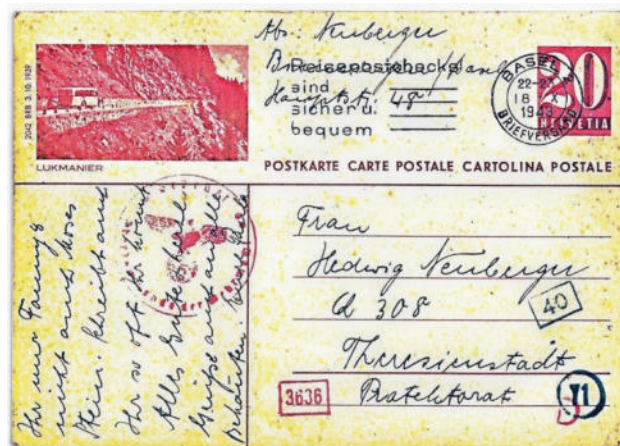 Abs: Neuberger
Reisepostschecks
sind
sicher u.
bequem
Hauptstr. 48
BASEL 2
22-2
18 X
1943
BRIEFVERSAND
20
HELVETIA
2042 BRB 3. 10. 1939
LUKMANIER
POSTKARTE CARTE POSTALE CARTOLINA POSTALE
Frau
Hedwig Neuberger
Q 308
Theresienstadt
Protektorat
40
3636
71
Ihr nur Fannys
nicht auch
schreibt auch
Ihr so oft Ihr könnt
Alles Gute
Grüsse auch an alle